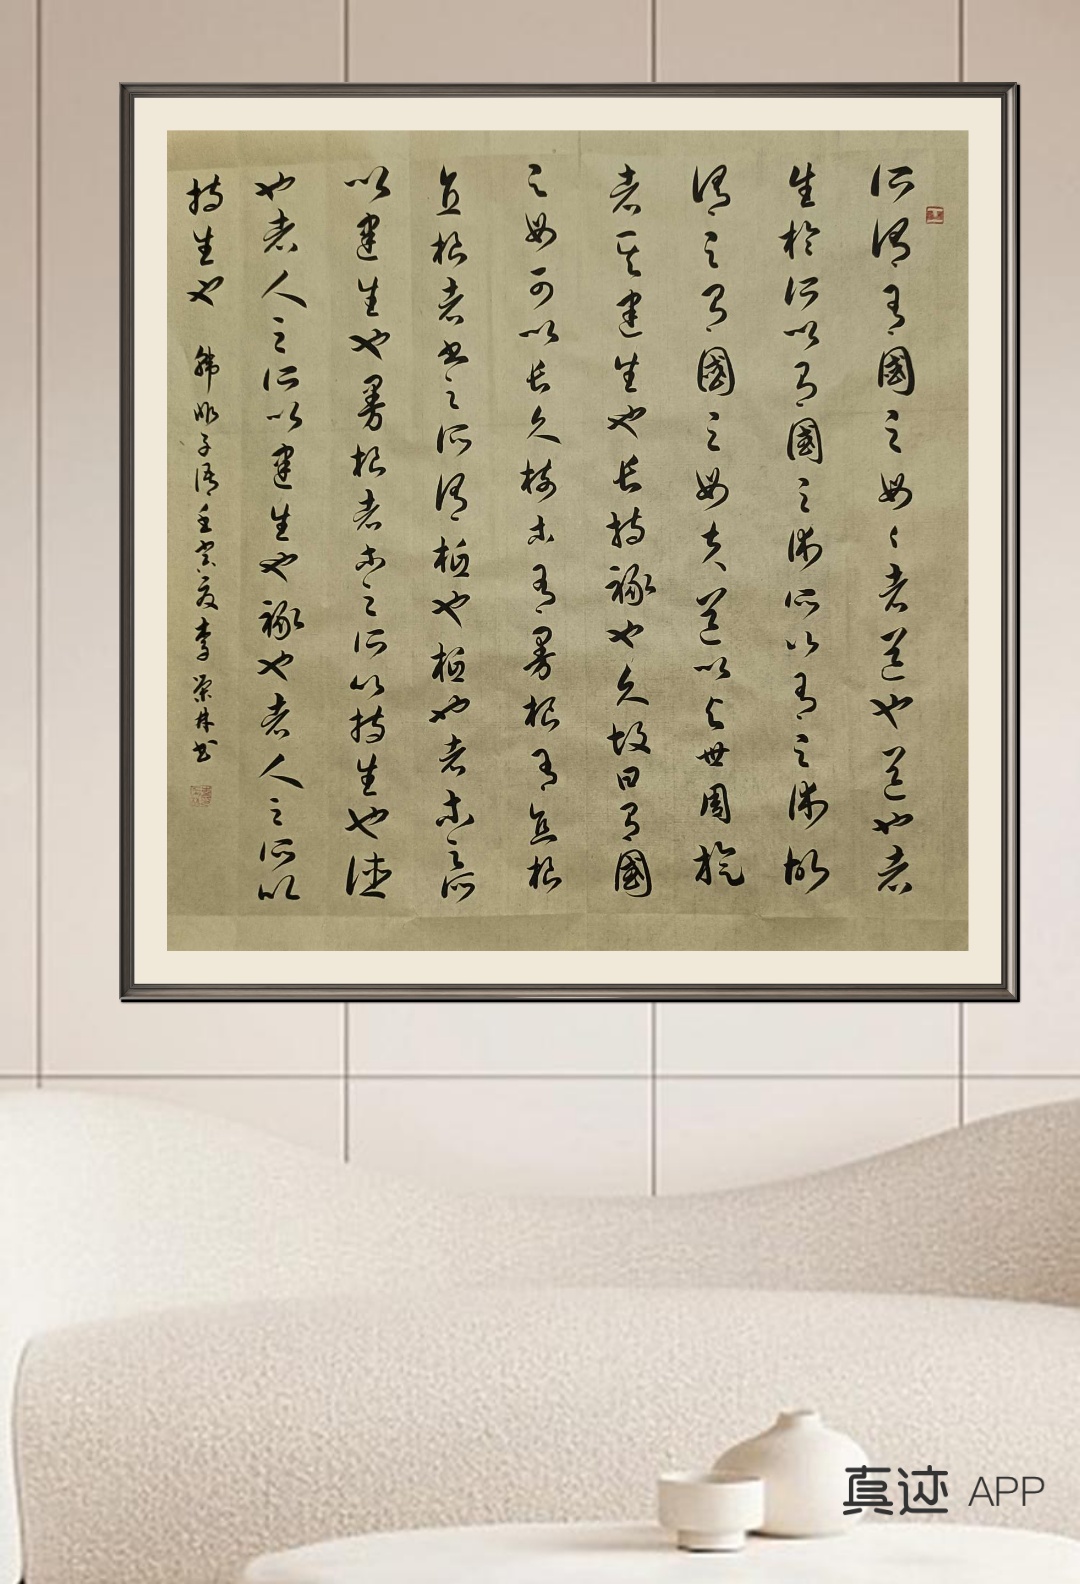 所謂有國之母々者道也道也者
生於所以有國之術所以有之術故
謂之有國之母夫道以與世周旋
者其建生也長持祿也久故曰有國
之母可以長久樹木有曼根有直根
直根者書之所謂柢也柢也者木之所
以建生也曼根者木之所以持生也德
也者人之所以建生也祿也者人之所以
持生也 韓非子語壬寅夏李榮林书
真迹 APP